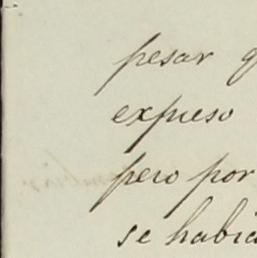 pesar q
expuso
pero por
se habia